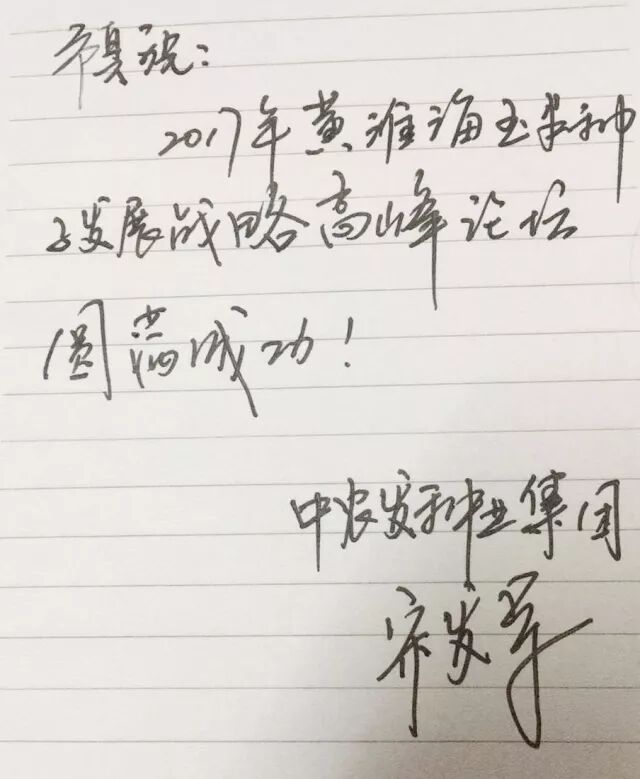 预祝：
2017年黄淮海玉米种
子发展战略高峰论坛
圆满成功！
中农发种业集团
宋发军